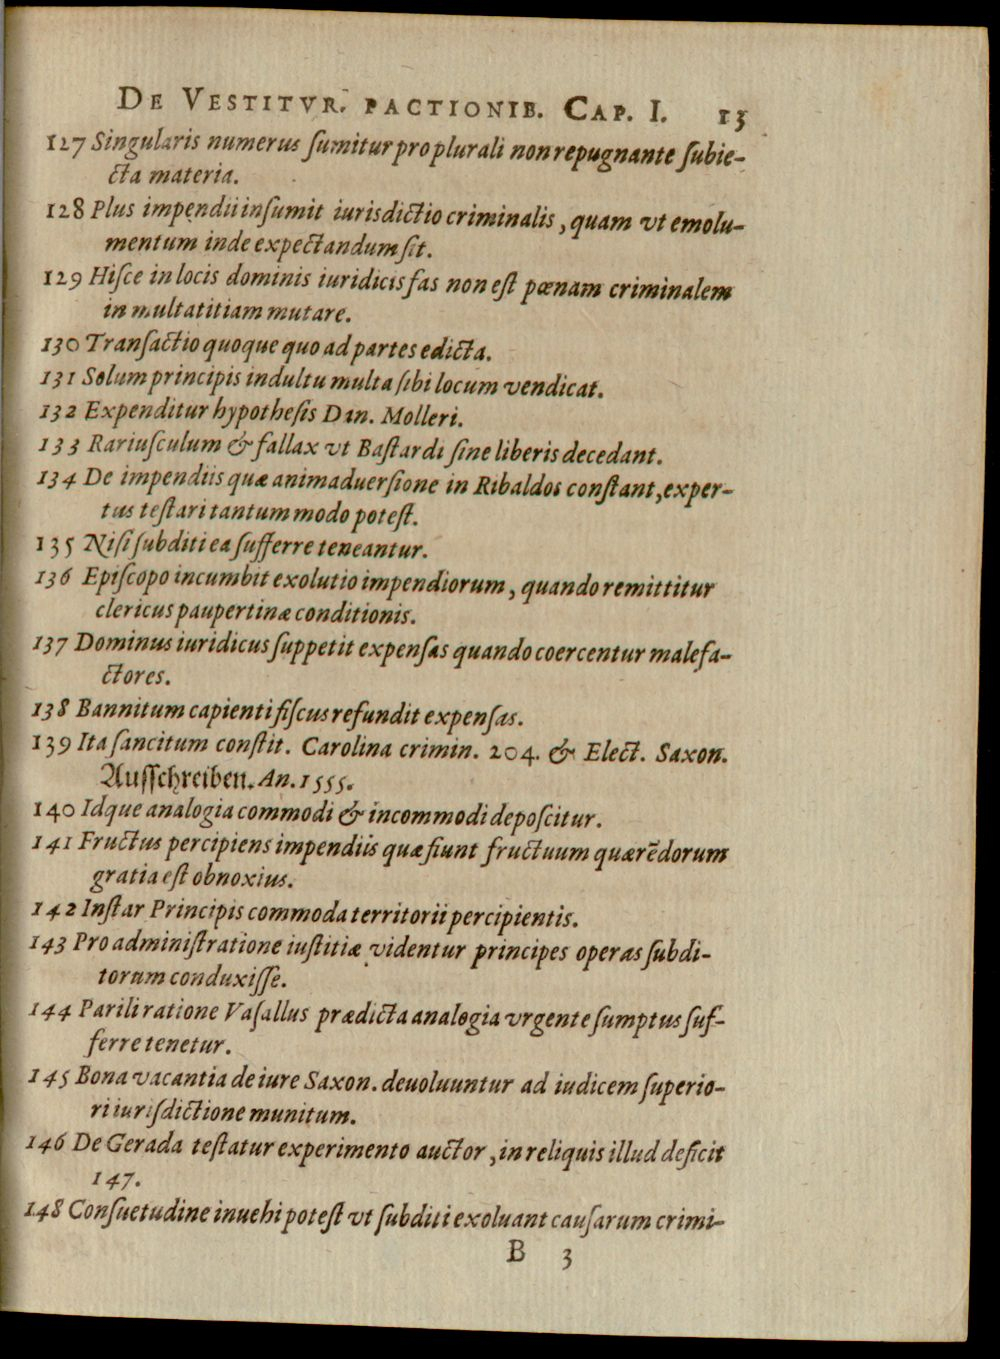 DE VESTITVR. PACTIONIB. CAP. I. 13
127 Singularis numerus ſumitur pro plurali non repugnante ſubie-
cta materia.
128 Plus impendii inſumit iurisdictio criminalis, quam vt emolu-
mentum inde expectandum ſit.
129 Hiſce in locis dominis iuridicis fas non eſt pœnam criminalem
in multatitiam mutare.
130 Tranſactio quoque quo ad partes edicta.
131 Solum principis indultu multa ſibi locum vendicat.
132 Expenditur hypotheſis Dn. Molleri.
133 Rariuſculum & fallax vt Baſtardi ſine liberis decedant.
134 De impendiis quæ animaduerſione in Ribaldos conſtant, exper-
tus teſtari tantummodo poteſt.
135 Niſi ſubditi ea ſufferre teneantur.
136 Epiſcopo incumbit exolutio impendiorum, quando remittitur
clericus paupertinæ conditionis.
137 Dominus iuridicus ſuppetit expenſas quando coercentur malefa-
ctores.
138 Bannitum capienti fiſcus refundit expenſas.
139 Ita ſancitum conſtit. Carolina crimin. 204. & Elect. Saxon.
Auſſchreiben. An. 1555.
140 Idque analogia commodi & incommodi depoſcitur.
141 Fructus percipiens impendiis quæ fiunt fructuum quærēdorum
gratia eſt obnoxius.
142 Inſtar Principis commoda territorii percipientis.
143 Pro adminiſtratione iuſtitiæ videntur principes operas ſubdi-
torum conduxiſſe.
144 Parili ratione Vaſallus prædicta analogia vrgente ſumptus ſuf-
ferre tenetur.
145 Bona vacantia de iure Saxon. deuoluuntur ad iudicem ſuperio-
ri iuriſdictione munitum.
146 De Gerada teſtatur experimento auctor, in reliquis illud deficit
147.
148 Conſuetudine inuehi poteſt vt ſubditi exoluant cauſarum crimi-
B 3